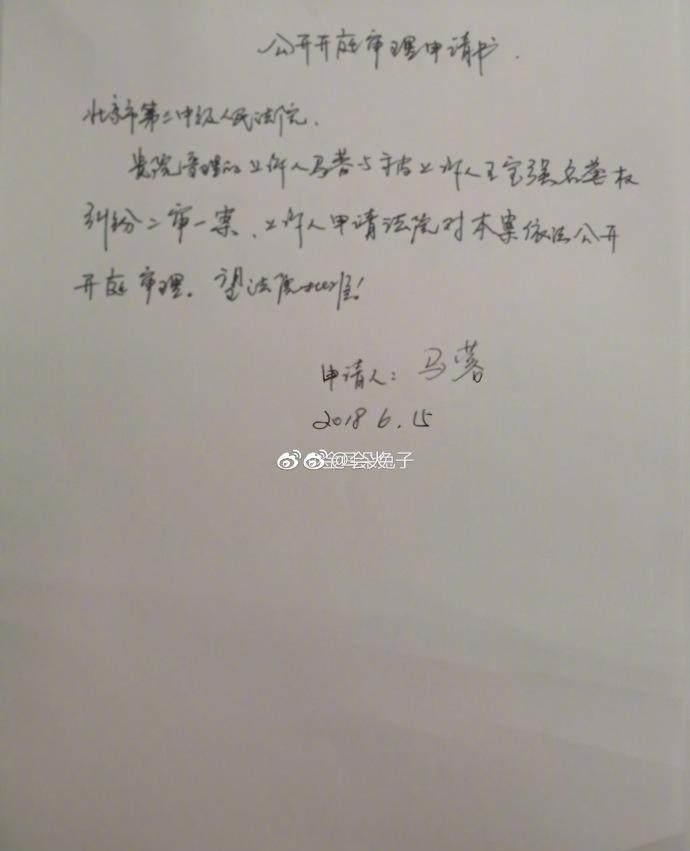 公开开庭审理申请书.
北京市第二中级人民法院.
贵院审理的上诉人马蓉与被上诉人王宝强名誉权
纠纷二审一案、上诉人申请法院对本案依法公开
开庭审理. 望法院批准!
申请人: 马蓉
2018 6.15